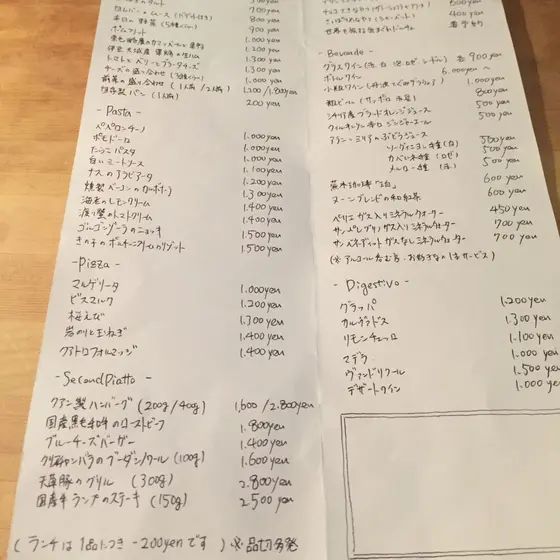 300yen
700yen
800yen
700yen
1.000yen
1.200yen
1.300yen
1.000yen
チーズの盛り合わせ
前菜の盛り合わせ (1人前/2人前) 1.200/1.800yen
自家製パン (1人前) 200yen
- Pasta -
ペペロンチーノ 1.000yen
ポモドーロ 1.000yen
たらこパスタ 1.000yen
白いミートソース 1.100yen
ナスのアラビアータ 1.200yen
燻製ベーコンのカルボナーラ 1.300yen
海老のレモンクリーム 1.400yen
渡り蟹のトマトクリーム 1.400yen
ゴルゴンゾーラのニョッキ 1.500yen
きのこのポルチーニクリームリゾット 1.500yen
- Pizza -
マルゲリータ 1.000yen
ビスマルク 1.200yen
桜えび 1.300yen
岩のりと玉ねぎ 1.400yen
クアトロフォルマッジ 1.400yen
- Second Piatto -
クアン製ハンバーグ (200g/400g) 1.600/2.800yen
国産黒毛和牛のローストビーフ 1.800yen
ブルーチーズバーガー 1.400yen
クリスチャンパラのブーダンノワール (100g) 1.600yen
天草豚のグリル (300g) 2.800yen
国産牛ランプのステーキ (150g) 2.500yen
(ランチは1品につき -200yenです) ※品切多発
500yen
400yen
- Bevande -
グラスワイン (泡・白・ロゼ・オレンジ・赤) 各900yen
ボトルワイン 6.000yen〜
1.000yen
瓶ビール (サッポロ 赤星) 800yen
シチリア産ブラッドオレンジジュース 500yen
ウィルキンソン辛口ジンジャーエール 500yen
アラン・ミリアのぶどうジュース
ソーヴィニヨン種 (白) 500yen
カベルネ種 (ロゼ) 500yen
メルロー種 (赤) 500yen
600yen
ヌーンブレンドの和紅茶 600yen
ペリエ ガス入りミネラルウォーター 450yen
サンペレグリノ ガス入りミネラルウォーター 700yen
サンベネデット ガスなしミネラルウォーター 700yen
(※アルコール呑む方、お好きなの1本サービス)
- Digestivo -
グラッパ 1.200yen
カルヴァドス 1.300yen
リモンチェッロ 1.100yen
マデラ 1.000yen
ヴァンドリクール 1.500yen
デザートワイン 1.000yen